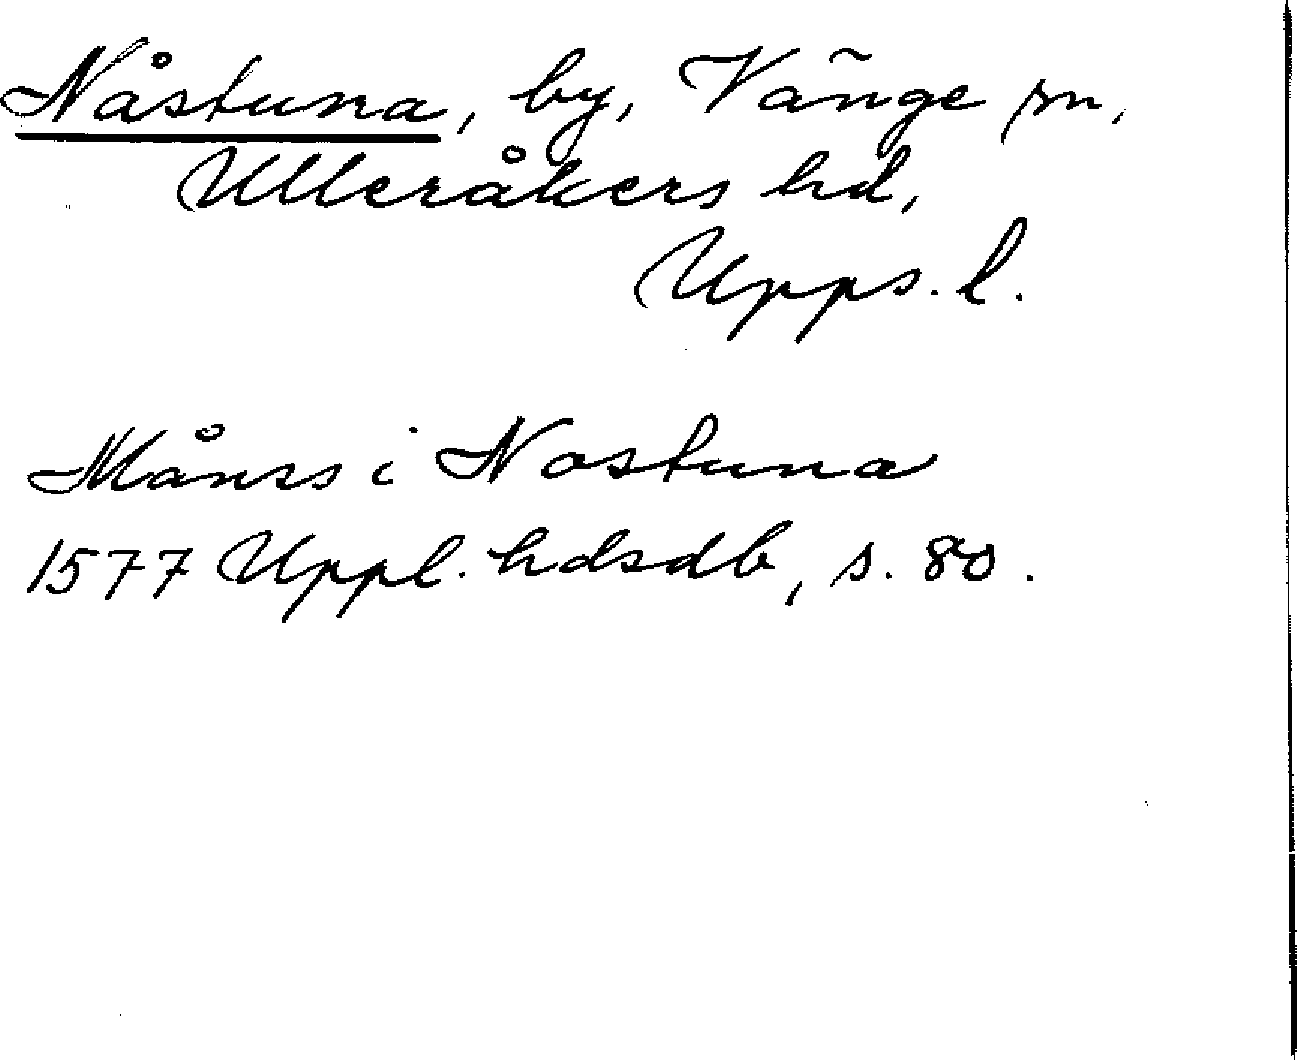 Nåstuna, by, Vänge sn,
Ulleråkers hd,
Upps. l.
Månss i Nostuna
1577 Uppl. hdsdb, s. 80.